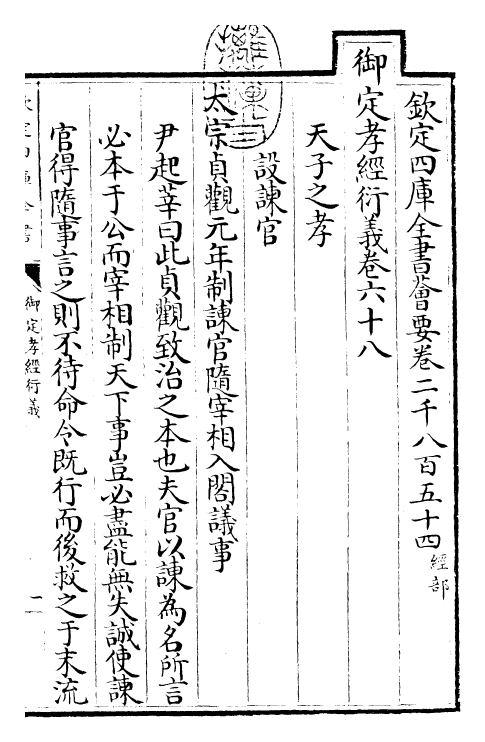 欽定四庫全書薈要卷二千八百五十四 經部
御定孝經衍義卷六十八
天子之孝
設諫官
太宗貞觀元年制諫官隨宰相入閣議事
尹起莘曰此貞觀致治之本也夫官以諫為名所言
必本于公而宰相制天下事豈必盡能無失誠使諫
官得隨事言之則不待命令既行而後救之于末流
御定孝經衍義